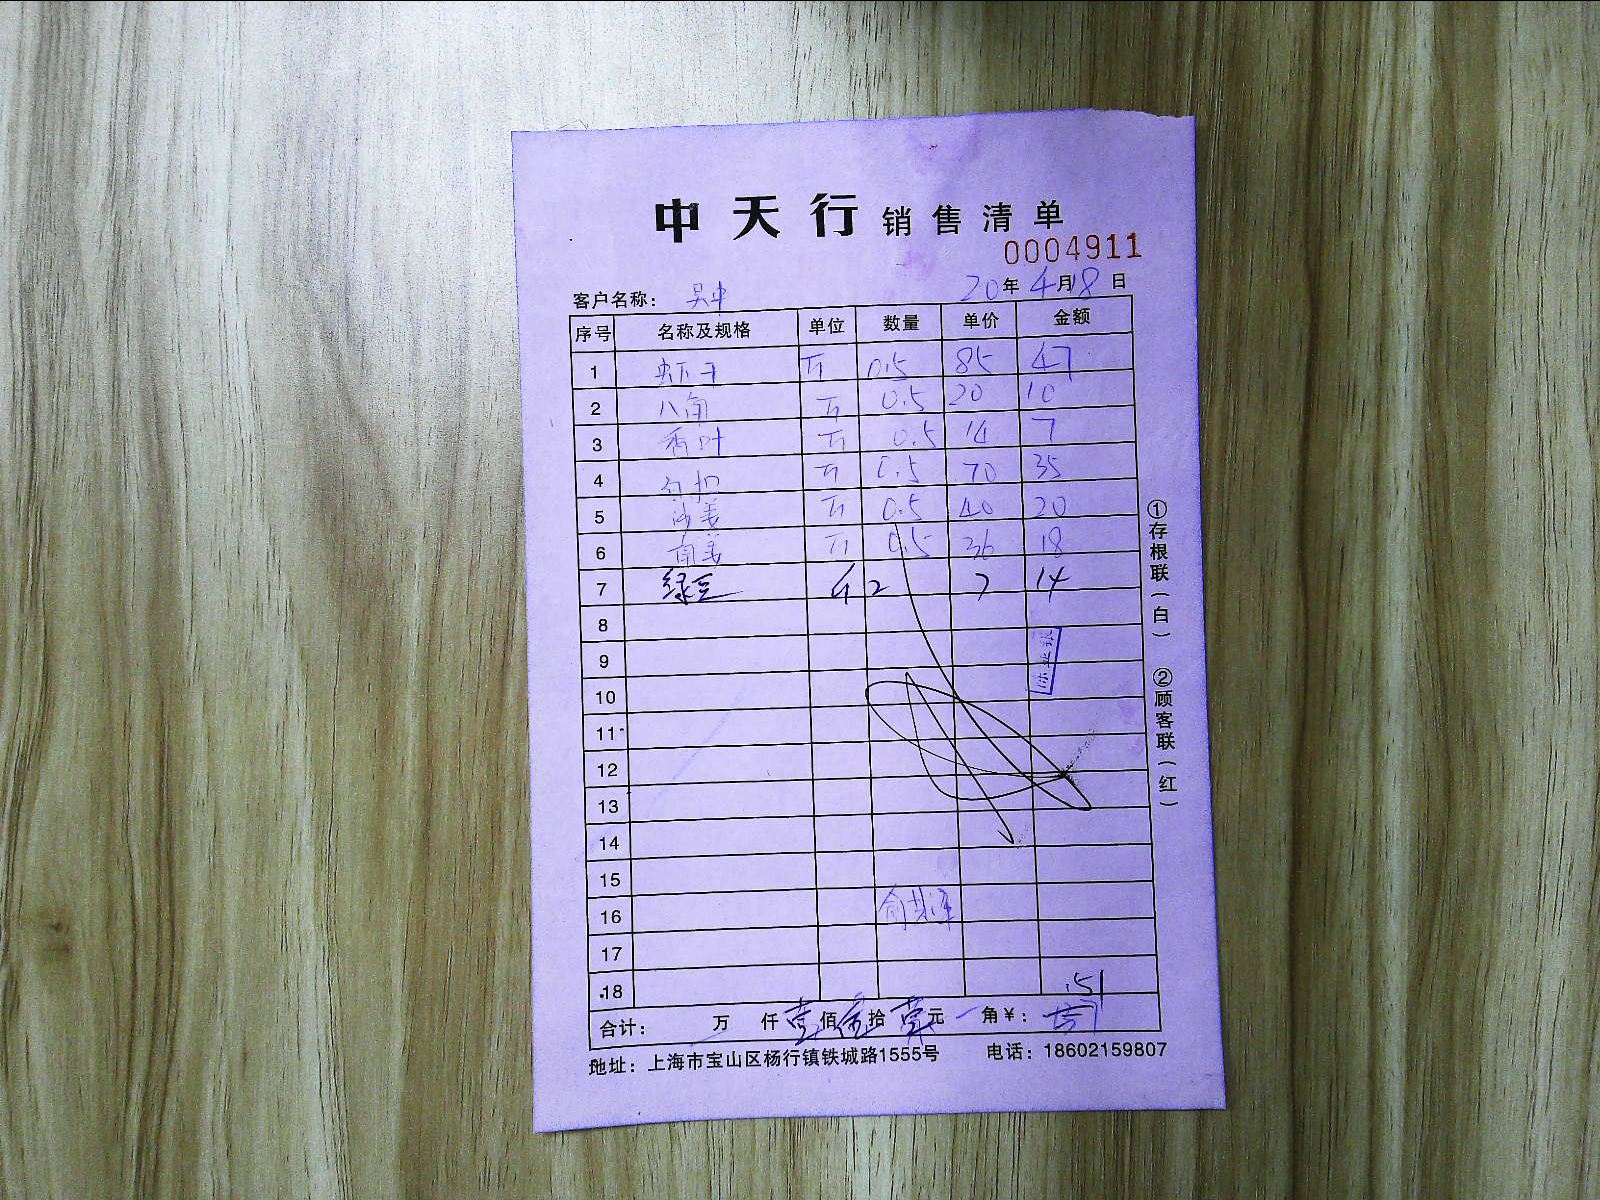 中天行 销售清单
0004911
客户名称： 吴中 20年4月18日
序号 名称及规格 单位 数量 单价 金额
1 虾干 斤 0.5 85 47
2 八角 斤 0.5 20 10
3 香叶 斤 0.5 14 7
4 勾扣 斤 0.5 70 35
5 沙姜 斤 0.5 40 20
6 南姜 斤 0.5 36 18
7 绿豆 斤 2 7 14
8
9
10
11
12
13
14
15
16
17
18
151
合计： 万 仟 壹佰 伍拾 壹元 角¥：
地址：上海市宝山区杨行镇铁城路1555号 电话：18602159807
①存根联（白） ②顾客联（红）